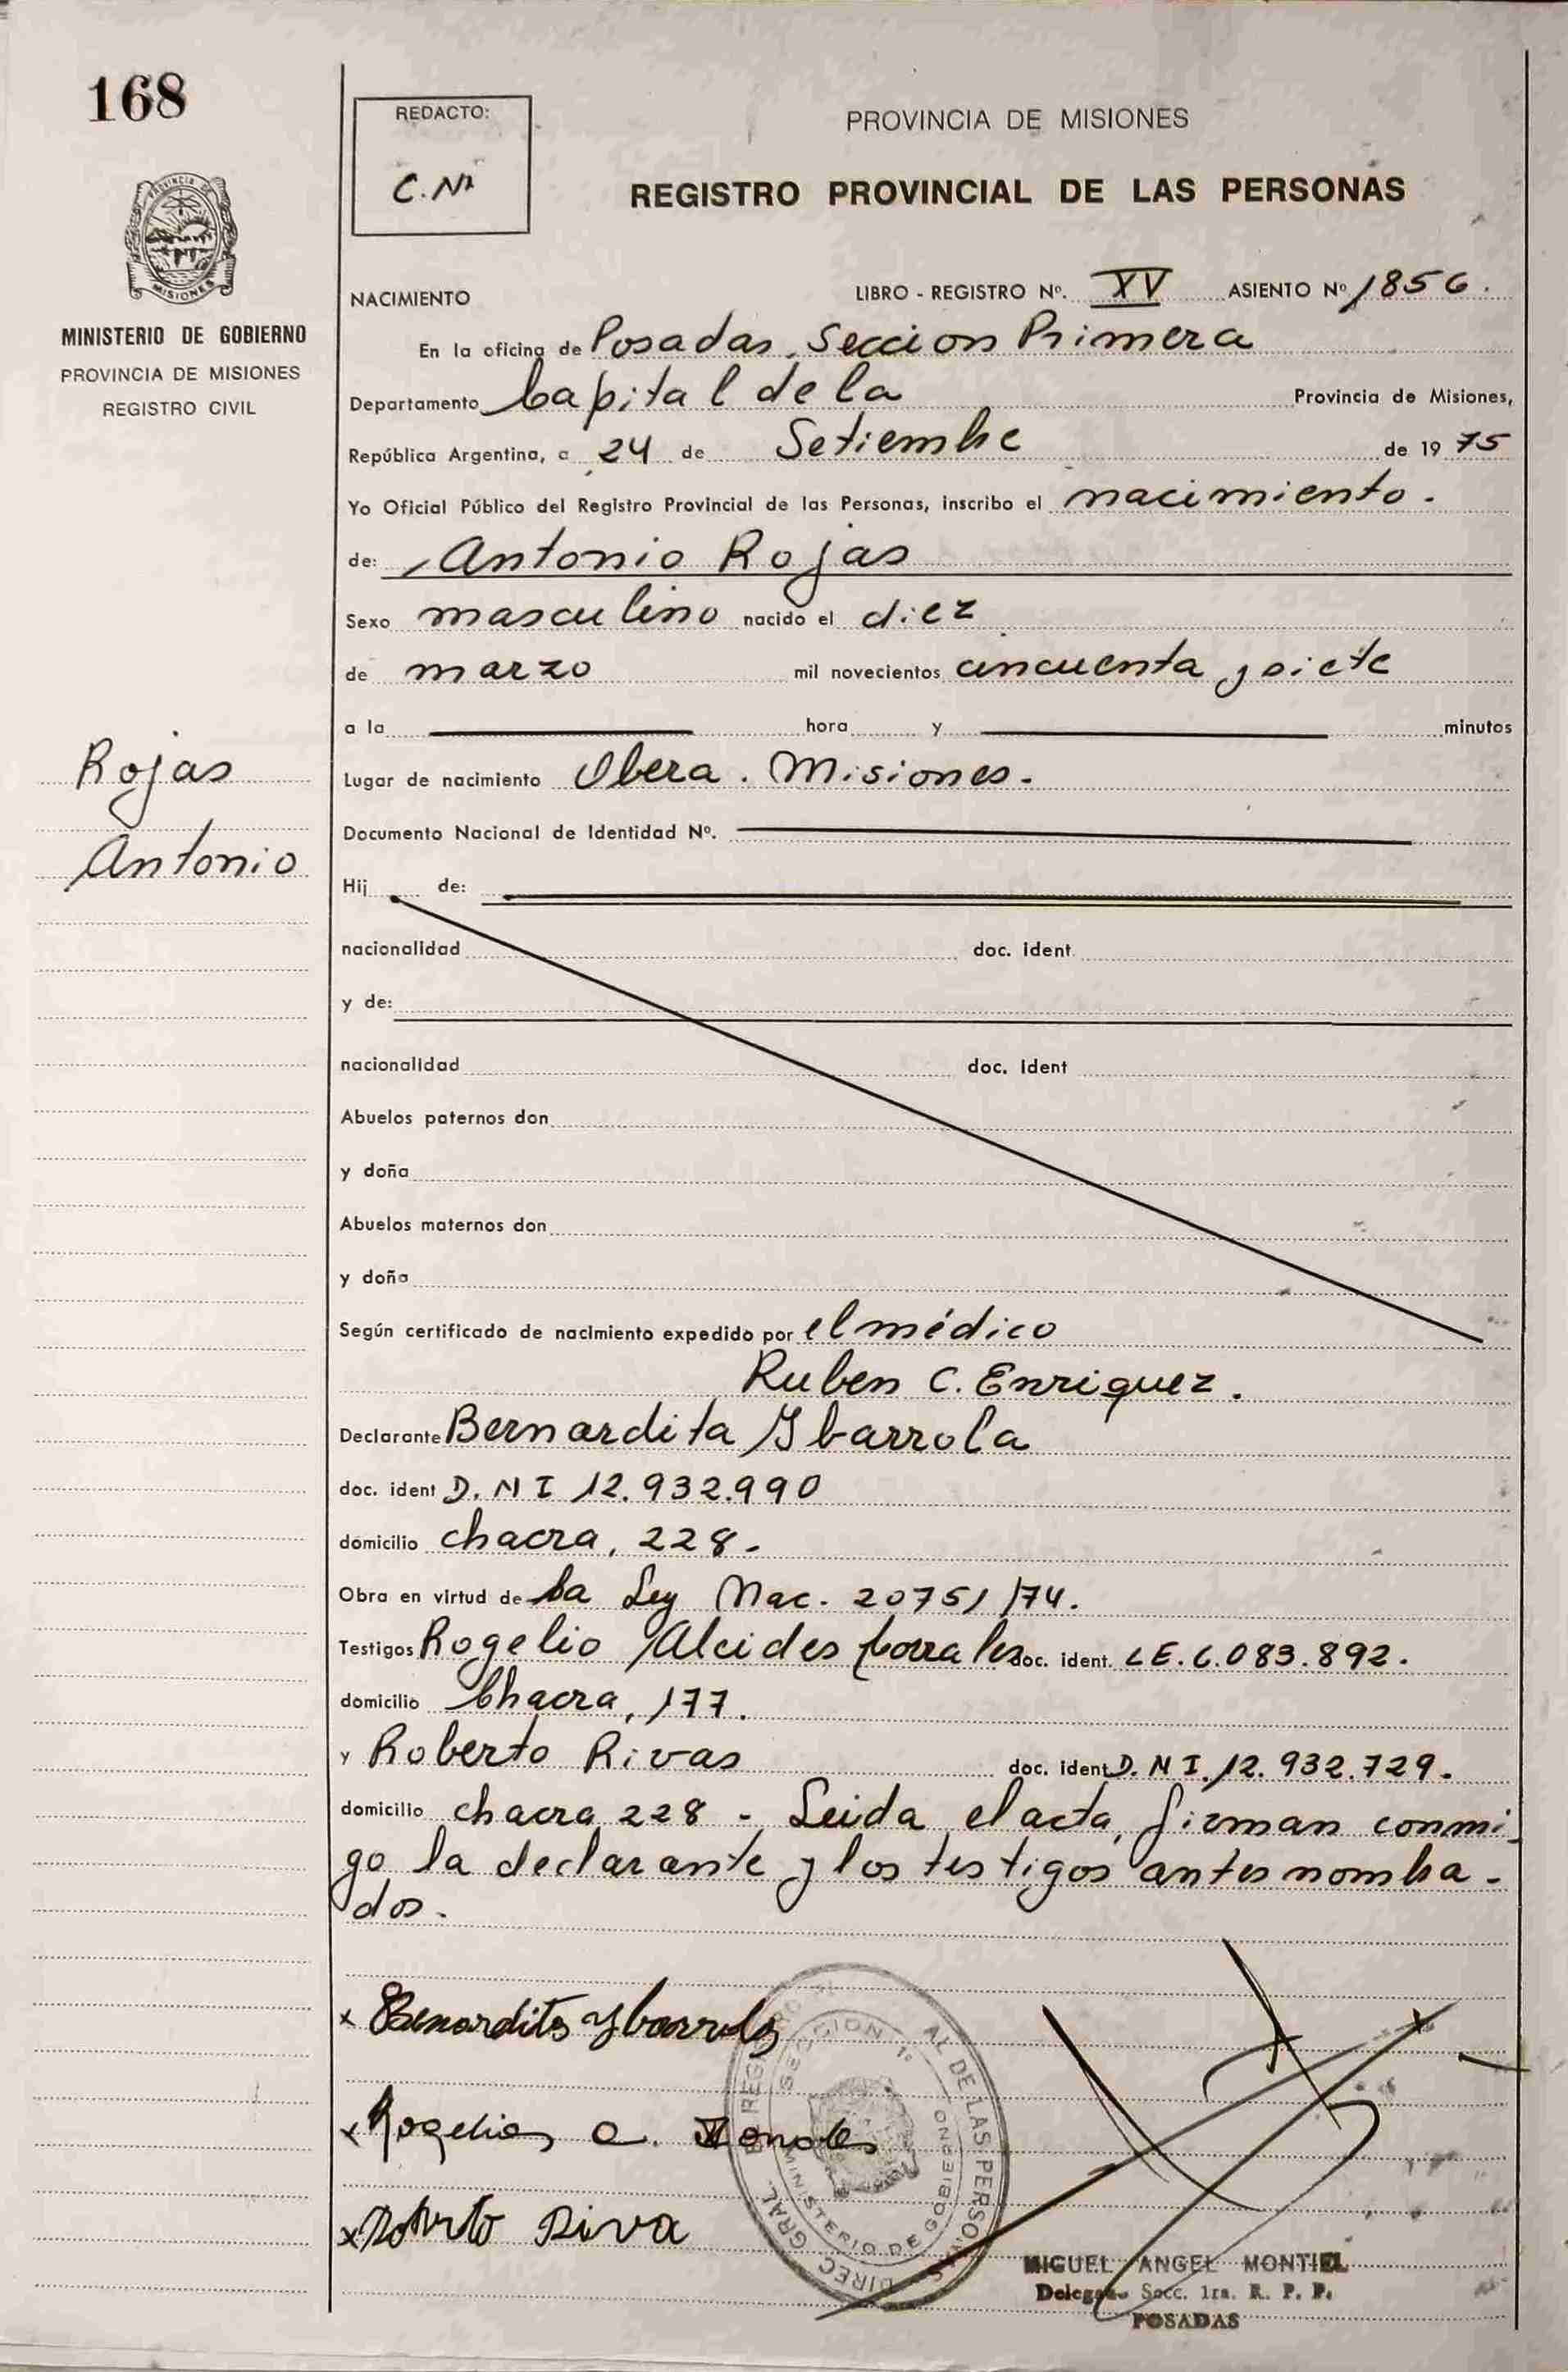 168
REDACTO:
C.N
PROVINCIA DE MISIONES
REGISTRO PROVINCIAL DE LAS PERSONAS
PROVINCIA DE
MISIONES
MINISTERIO DE GOBIERNO
PROVINCIA DE MISIONES
REGISTRO CIVIL
NACIMIENTO LIBRO - REGISTRO Nº. XV ASIENTO Nº 1856.
En la oficina de Posadas, Seccion Primera
Departamento Capital de la Provincia de Misiones,
República Argentina, a 24 de Setiembre de 1975
Yo Oficial Público del Registro Provincial de las Personas, inscribo el nacimiento.
de: Antonio Rojas
Sexo masculino nacido el diez
de marzo mil novecientos cincuenta y siete
a la hora y minutos
Rojas
Antonio
Lugar de nacimiento Obera. Misiones.
Documento Nacional de Identidad Nº.
Hij de:
nacionalidad doc. ident
y de:
nacionalidad doc. Ident
Abuelos paternos don
y doña
Abuelos maternos don
y doña
Según certificado de nacimiento expedido por el médico
Ruben C. Enriquez.
Declarante Bernardita Ybarrola
doc. ident D.N I 12.932.990
domicilio chacra, 228.
Obra en virtud de la Ley Nac. 20751/74.
Testigos Rogelio Alcides Corrales doc. ident. LE. 6.083.892.
domicilio Chacra, 177.
y Roberto Rivas doc. ident D.N I. 12.932.729.
domicilio chacra 228 - Leida el acta, firman conmi-
go la declarante y los testigos antes nombra-
dos.
x Bernardita Ybarrola
x Rogelio A.
x Roberto Riva
SECCION 1ª
AL DE LAS PERSONAS
MINISTERIO DE GOBIERNO
DIREC. GRAL.
MIGUEL ANGEL MONTIEL
Delegado Secc. 1ra. R. P. P.
POSADAS